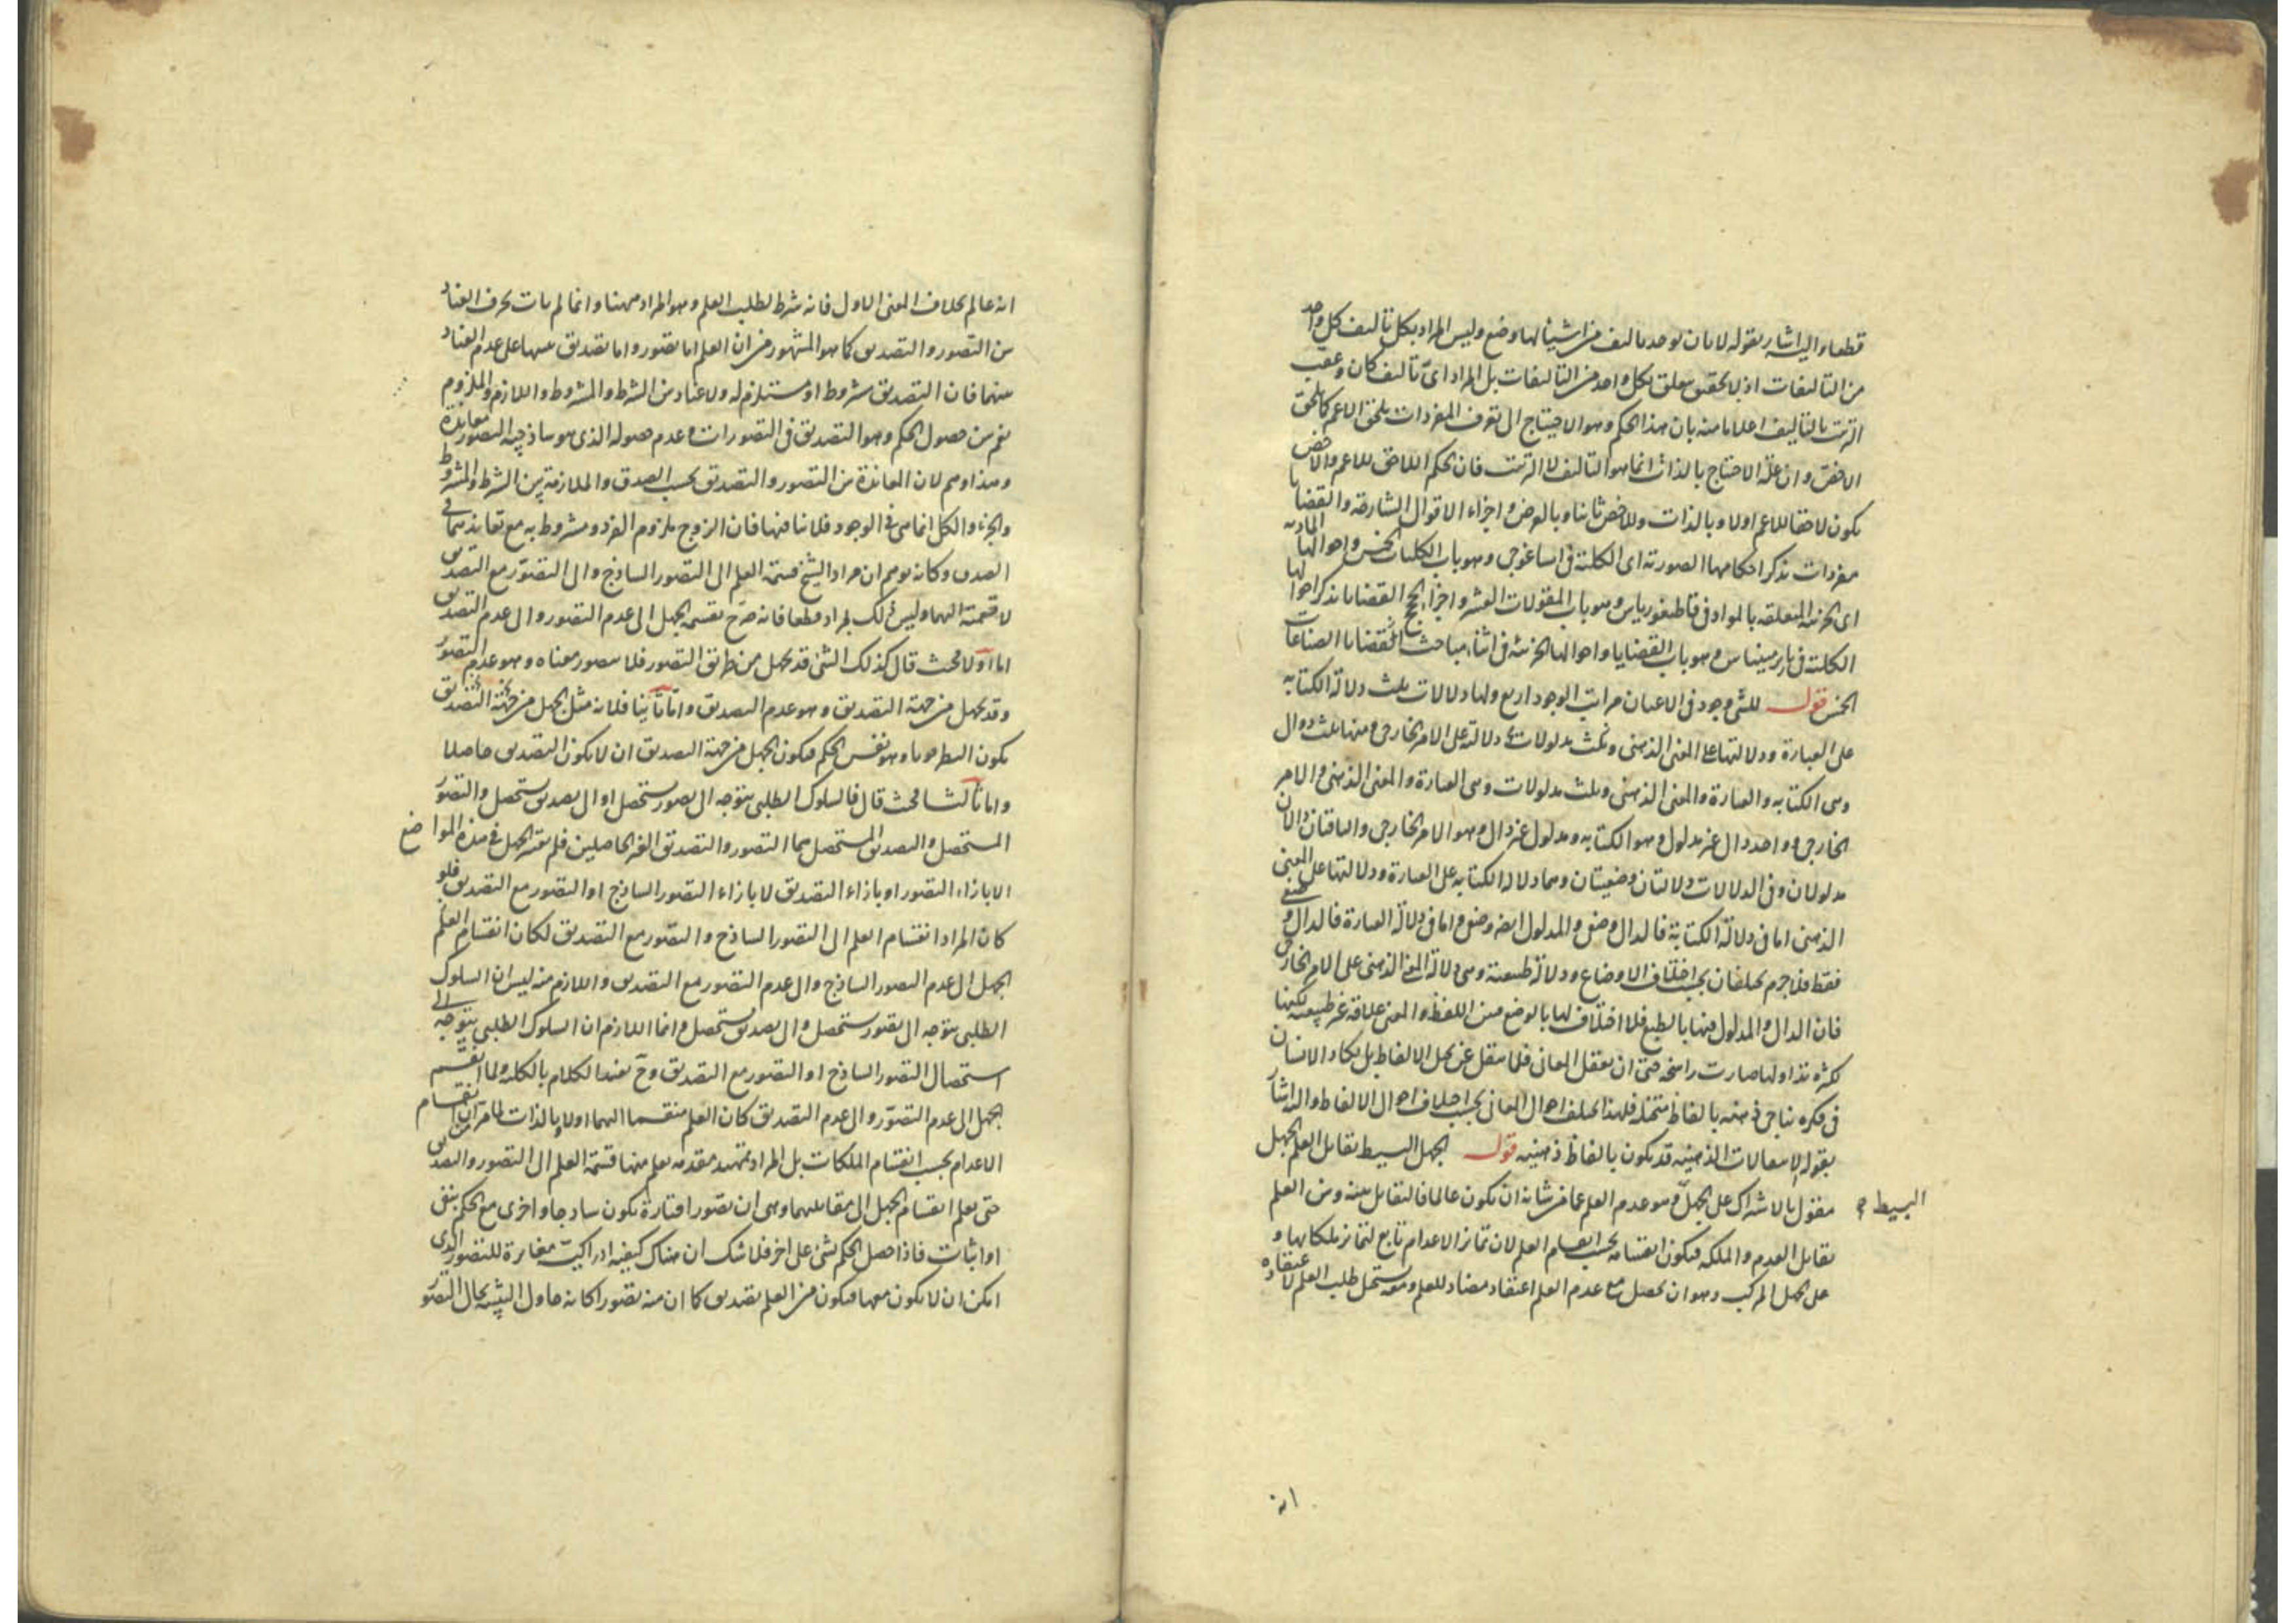 قطعا واليه اشار بقوله لا بان يوجد تاليف من اشياء لها وضع وليس المراد بكل تاليف كل واحد
من التاليفات اذ لا تحقق يتعلق بكل واحد من التاليفات بل المراد اى تاليف كان وعقب
الترتيب بالتاليف اعلاما منه بان هذا الحكم وهو الاحتياج الى تعرف المفردات يلحق الاعم كما يلحق
الاخص وان علة الاحتياج بالذات انما هو التاليف لا الترتيب فان الحكم اللاحق للاعم والاخص
يكون لاحقا للاعم اولا وبالذات وللاخص ثانيا وبالعرض واجزاء الاقوال الشارحة والقضايا
مفردات تذكر احكامها الصورية اى الكلية فى ايساغوجى وهو باب الكليات الخمس واحوالها المادية
اى الجزئية المتعلقة بالمواد فى قاطيغورياس وهو باب المقولات العشر واجزاء الحجج القضايا تذكر احوالها
الكلية فى باريرمينياس وهو باب القضايا واحوالها الجزئية فى اثناء مباحث القضايا الصناعات
الخمس قوله للشىء وجود فى الاعيان مراتب الوجود اربع ولها دلالات ثلث دلالة الكتابة
على العبارة ودلالتها على المعنى الذهنى وثلث مدلولات دلالته على الامر الخارجى ومنها ثلث دوال
وهى الكتابة والعبارة والمعنى الذهنى وثلث مدلولات وهى العبارة والمعنى الذهنى والامر
الخارجى وواحد دال غير مدلول وهو الكتابة ومدلول غير دال وهو الامر الخارجى والباقيان دالان
مدلولان وفى الدلالات دلالتان وضعيتان وهما دلالة الكتابة على العبارة ودلالتها على المعنى
الذهنى اما فى دلالة الكتابة فالدال وضعى والمدلول ايضا وضعى واما فى دلالة العبارة فالدال وضعى
فقط فلا جرم يختلفان بحسب اختلاف الاوضاع ودلالة طبيعية وهى دلالة المعنى الذهنى على الامر الخارجى
فان الدال والمدلول فيها بالطبع فلا اختلاف لها بالوضع فبين اللفظ والمعنى علاقة غير طبيعية لكنها
لكثرة تداولها صارت راسخة حتى ان تعقل المعانى قلما ينفك عن تخيل الالفاظ بل يكاد الانسان
فى فكره يناجى ذهنه بالفاظ متخيلة فلهذا يختلف احوال المعانى بحسب اختلاف احوال الالفاظ واليه اشار
بقوله الانتقالات الذهنية قد يكون بالفاظ ذهنية قوله الجهل البسيط يقابل العلم الجهل
مقول بالاشتراك على الجهل وهو عدم العلم عما من شانه ان يكون عالما فالتقابل بينه وبين العلم
البسيط
تقابل العدم والملكة فيكون انقسامه بحسب انقسام العلم لان تمايز الاعدام تابع لتمايز ملكاتها و
على الجهل المركب وهو ان يحصل مع عدم العلم اعتقاد مضاد للعلم ومعه يستحيل طلب العلم لاعتقاده
انه
انه عالم بخلاف المعنى الاول فانه شرط لطلب العلم وهو المراد ههنا وانما لم يات بحرف العناد
بين التصور والتصديق كما هو المشهور من ان العلم اما تصور واما تصديق تنبيها على عدم العناد
بينهما فان التصديق مشروط او مستلزم له ولا عناد بين الشرط والمشروط واللازم والملزوم
نعم بين حصول الحكم وهو التصديق فى التصورات وعدم حصوله الذى هو ساذجية التصور معاندة
وهذا وهم لان المعاندة بين التصور والتصديق بحسب الصدق والملازمة بين الشرط والمشروط
والجزء والكل انما هى فى الوجود فلا ينافيها فان الزوج ملزوم الفرد ومشروط به مع تعاندهما فى
الصدق وكانه توهم ان مراد الشيخ قسمة العلم الى التصور الساذج والى التصور مع التصديق
لا قسمته اليهما وليس ذلك بمراد قطعا فانه صرح بقسمة الجهل الى عدم التصور والى عدم التصديق
اما اولا فحيث قال كذلك الشئ قد يجهل من طريق التصور فلا يتصور معناه وهو عدم التصور
وقد يجهل من جهة التصديق وهو عدم التصديق واما ثانيا فلانه مثل الجهل من جهة التصديق
بكون وهو نفس الحكم فيكون الجهل من جهة التصديق ان لا يكون التصديق حاصلا
واما ثالثا فحيث قال فالسلوك الطلبى يتوجه الى تصور يستحصل او الى تصديق يستحصل والتصور
المستحصل والتصديق المستحصل هما التصور والتصديق الغير الحاصلين فلم يقسم الجهل فى هذه المواضع
الا بازاء التصور او بازاء التصديق لا بازاء التصور الساذج او التصور مع التصديق فلو
كان المراد انقسام العلم الى التصور الساذج والتصور مع التصديق لكان انقسام العلم
الجهل الى عدم التصور الساذج والى عدم التصور مع التصديق واللازم منه ليس ان السلوك
الطلبى يتوجه الى تصور يستحصل والى تصديق يستحصل وانما اللازم ان السلوك الطلبى يتوجه الى
استحصال التصور الساذج او التصور مع التصديق وح يفسد الكلام بالكلية ولما انقسم
الجهل الى عدم التصور والى عدم التصديق كان العلم منقسما اليهما اولا وبالذات لما مر ان انقسام
الاعدام بحسب انقسام الملكات بل المراد تمهيد مقدمة يعلم منها قسمة العلم الى التصور والتصديق
حتى يعلم انقسام الجهل الى مقابليهما وهى ان تصورا فتارة يكون ساذجا واخرى مع الحكم بنفى
او اثبات فاذا حصل الحكم بشئ على اخر فلا شك ان هناك كيفية ادراكية مغايرة للتصور الذى
امكن ان لا يكون معها فيكون من العلم تصديق كما ان منه تصورا كانه حاول التنبيه بحال التصور